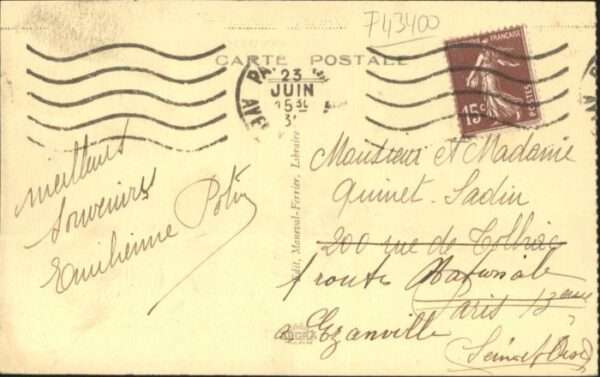 F43400
CARTE POSTALE
FRANÇAISE
15c
POSTES
23
JUIN
15 30
Meilleurs
souvenirs
Emilienne Potin
Édit. Moneval-Ferrier, Libraire
Monsieur et Madame
Quinet-Sadin
200 rue de Tolbiac
1 route Nationale
Paris 13
a Ezanville
(Seine et Oise)